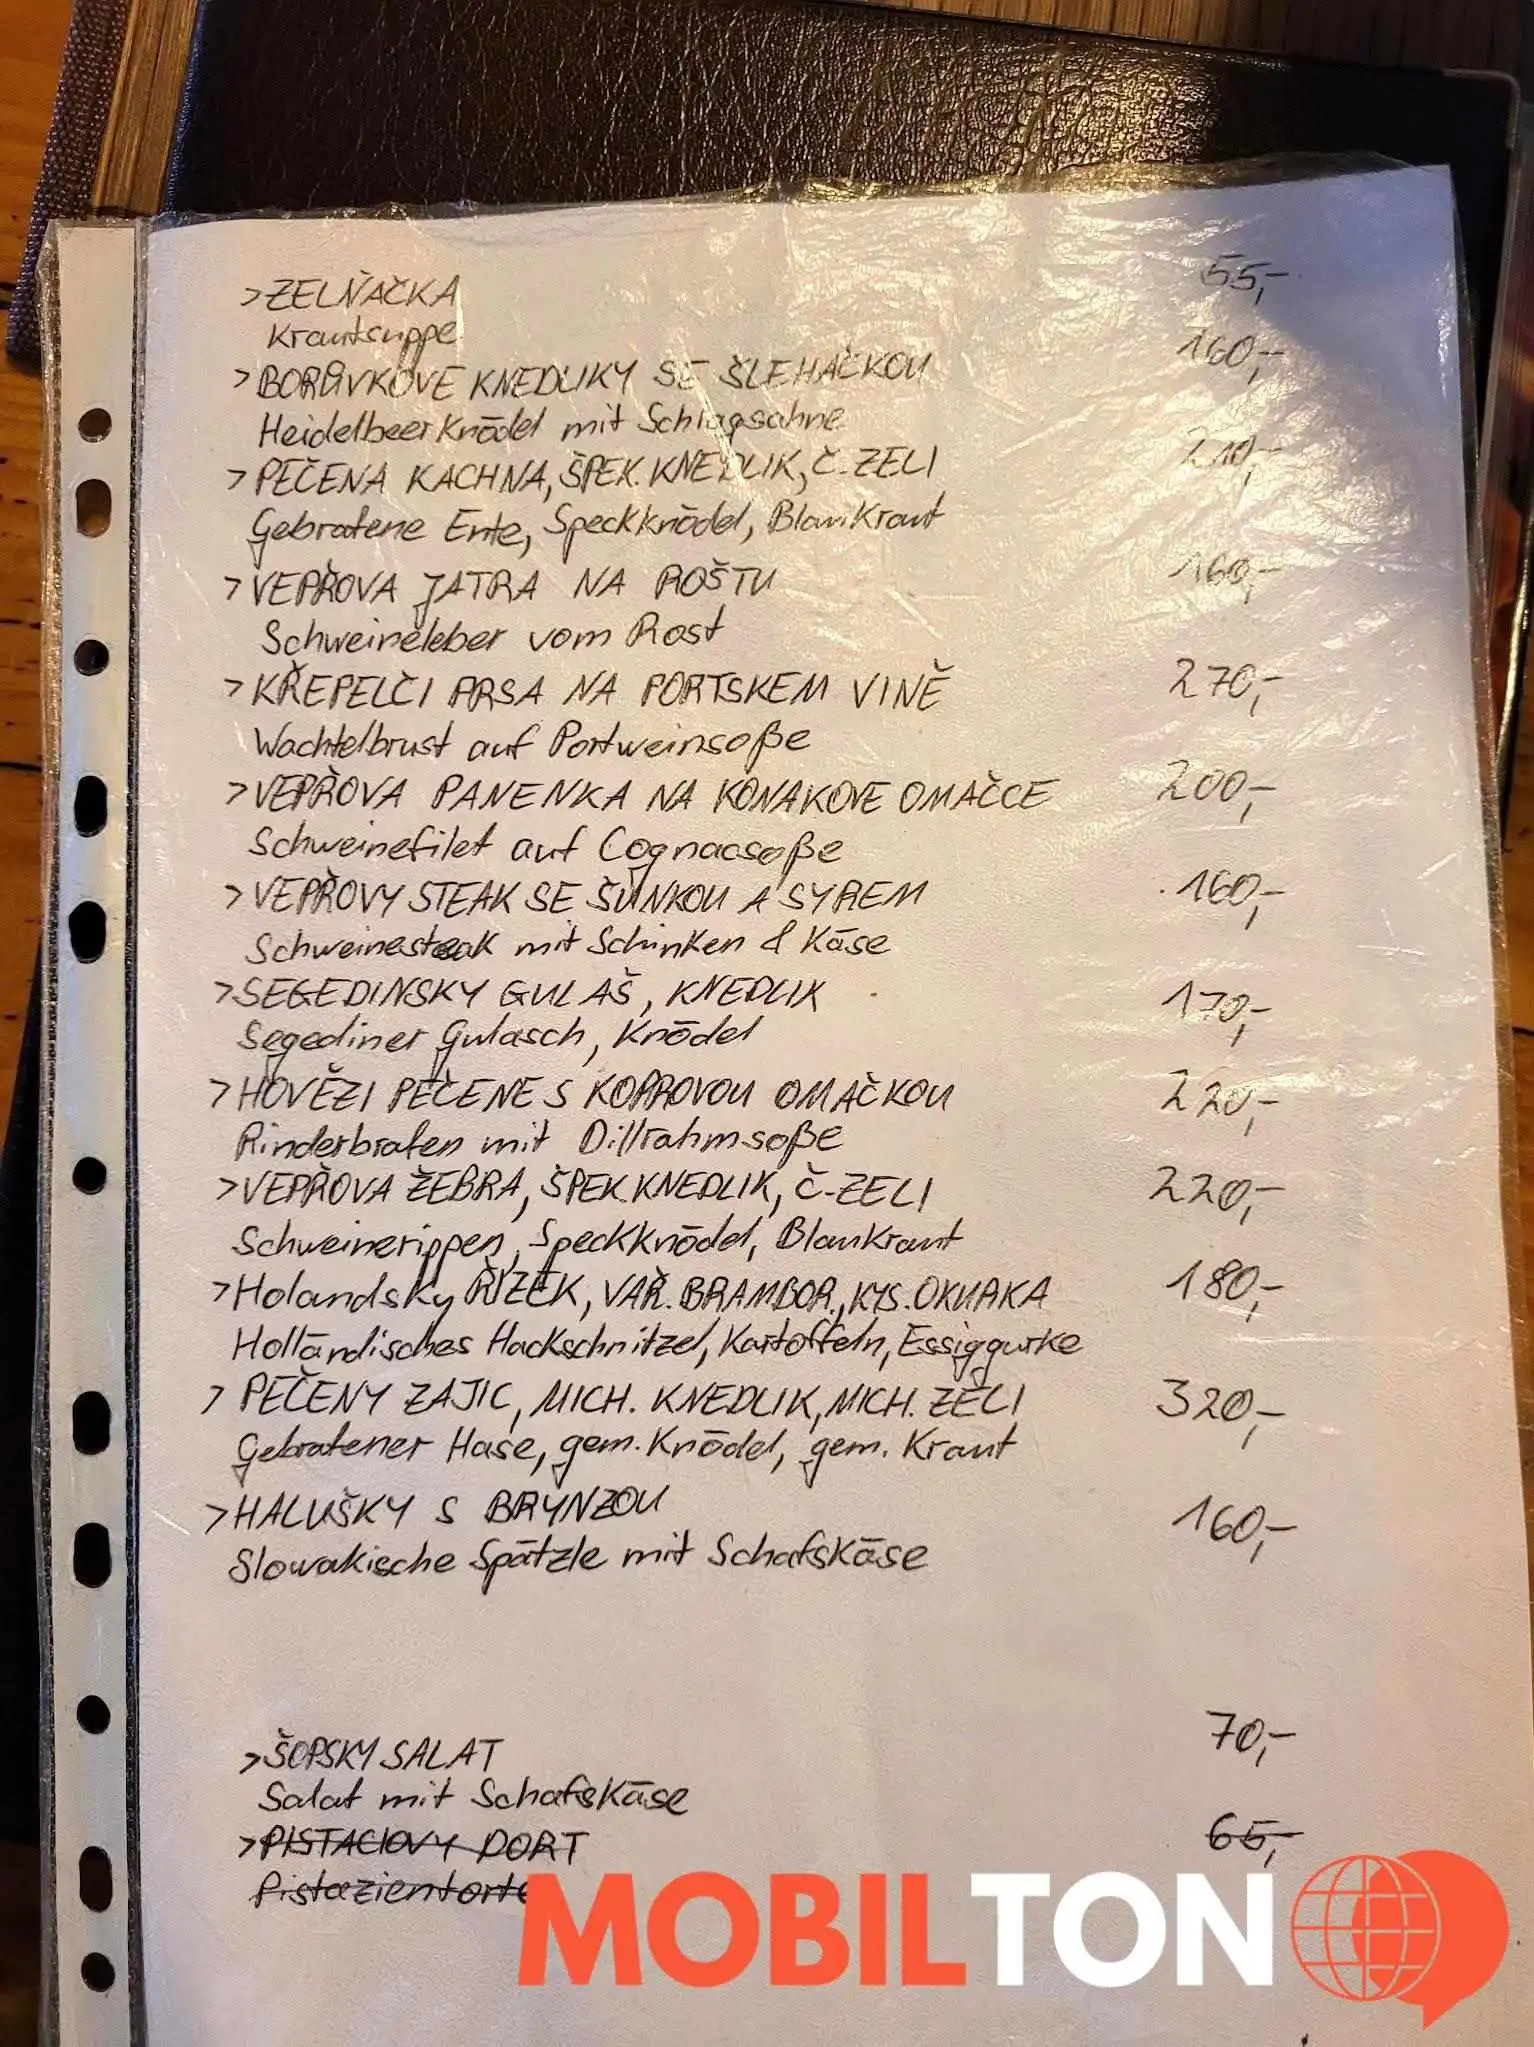 >ZELŇAČKA 55,-
Krautsuppe
>BORŮVKOVE KNEDLIKY SE ŠLEHAČKOU 160,-
Heidelbeerknödel mit Schlagsahne
>PEČENA KACHNA, ŠPEK. KNEDLIK, Č-ZELI 210,-
Gebratene Ente, Speckknödel, Blaukraut
>VEPŘOVA JATRA NA ROŠTU 160,-
Schweineleber vom Rost
>KŘEPELČI PRSA NA PORTSKEM VINĚ 270,-
Wachtelbrust auf Portweinsoße
>VEPŘOVA PANENKA NA KONAKOVE OMAČCE 200,-
Schweinefilet auf Cognacsoße
>VEPŘOVY STEAK SE ŠUNKOU A SYREM 160,-
Schweinesteak mit Schinken & Käse
>SEGEDINSKY GULAŠ, KNEDLIK 170,-
Segediner Gulasch, Knödel
>HOVĚZI PEČENE S KOPROVOU OMAČKOU 220,-
Rinderbraten mit Dillrahmsoße
>VEPŘOVA ŽEBRA, ŠPEK. KNEDLIK, Č-ZELI 220,-
Schweinerippen, Speckknödel, Blaukraut
>Holandsky ŘIZEK, VAŘ. BRAMBOR., KYS. OKURKA 180,-
Holländisches Hackschnitzel, Kartoffeln, Essiggurke
> PEČENY ZAJIC, MICH. KNEDLIK, MICH. ZELI 320,-
Gebratener Hase, gem. Knödel, gem. Kraut
>HALUŠKY S BRYNZOU 160,-
Slowakische Spätzle mit Schafskäse
>ŠOPSKY SALAT 70,-
Salat mit Schafskäse
>PISTACIOVY DORT 65,-
Pistazientorte
MOBILTON